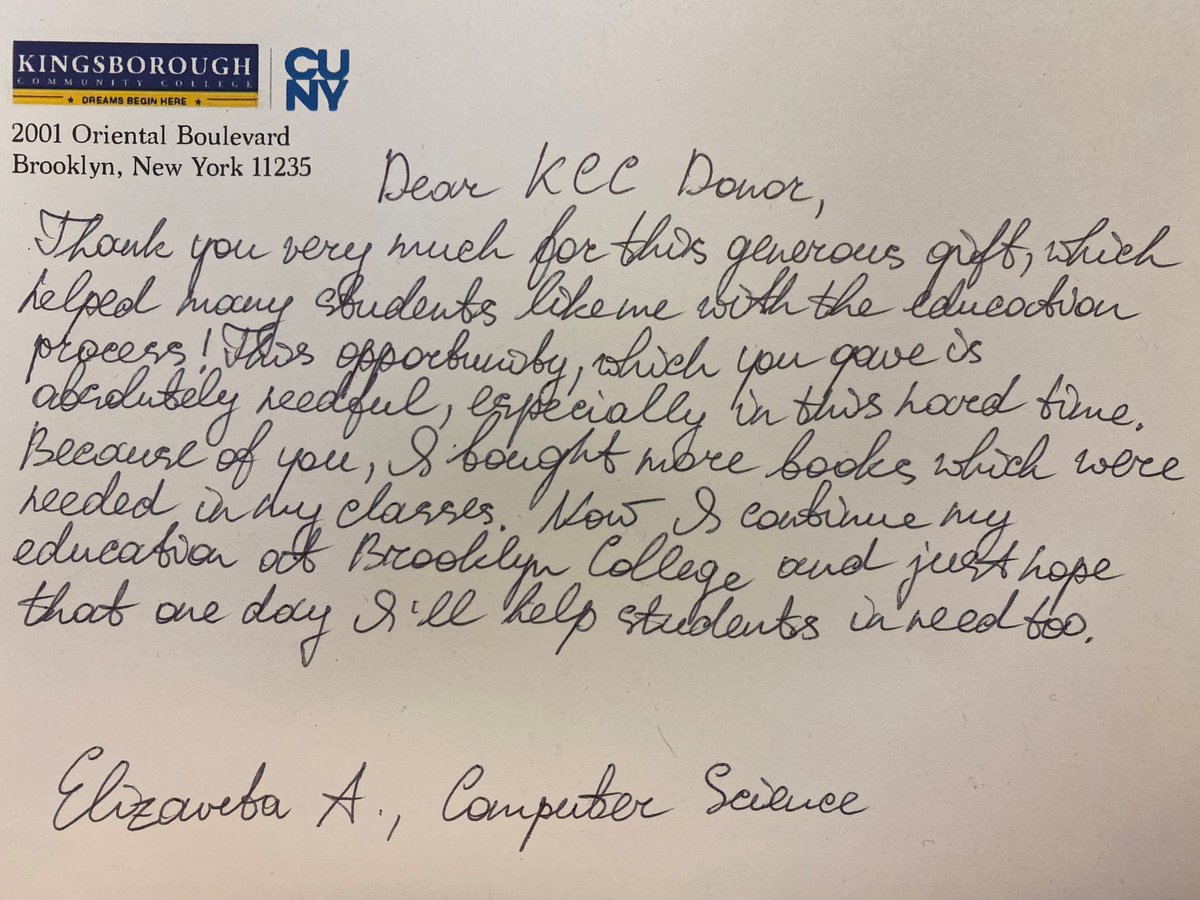 KINGSBOROUGH
COMMUNITY COLLEGE
★ DREAMS BEGIN HERE ★
CU
NY
2001 Oriental Boulevard
Brooklyn, New York 11235
Dear KCC Donor,
Thank you very much for this generous gift, which
helped many students like me with the education
process! This opportunity, which you gave is
absolutely needful, especially in this hard time.
Because of you, I bought more books which were
needed in my classes. Now I continue my
education at Brooklyn College and just hope
that one day I'll help students in need too.
Elizaveta A., Computer Science